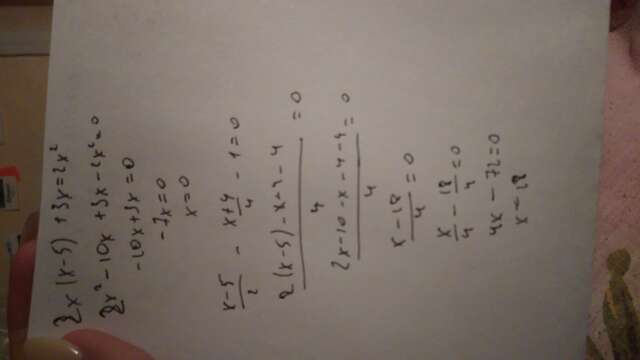 2x (x-5) + 3x = 2x²
2x² - 10x + 3x - 2x² = 0
-10x + 3x = 0
-7x = 0
x = 0
x-5/2 - x+4/4 - 1 = 0
2(x-5) - x - 4 - 4/4 = 0
2x - 10 - x - 4 - 4/4 = 0
x - 18/4 = 0
x/4 - 18/4 = 0
4x - 72 = 0
x = 18